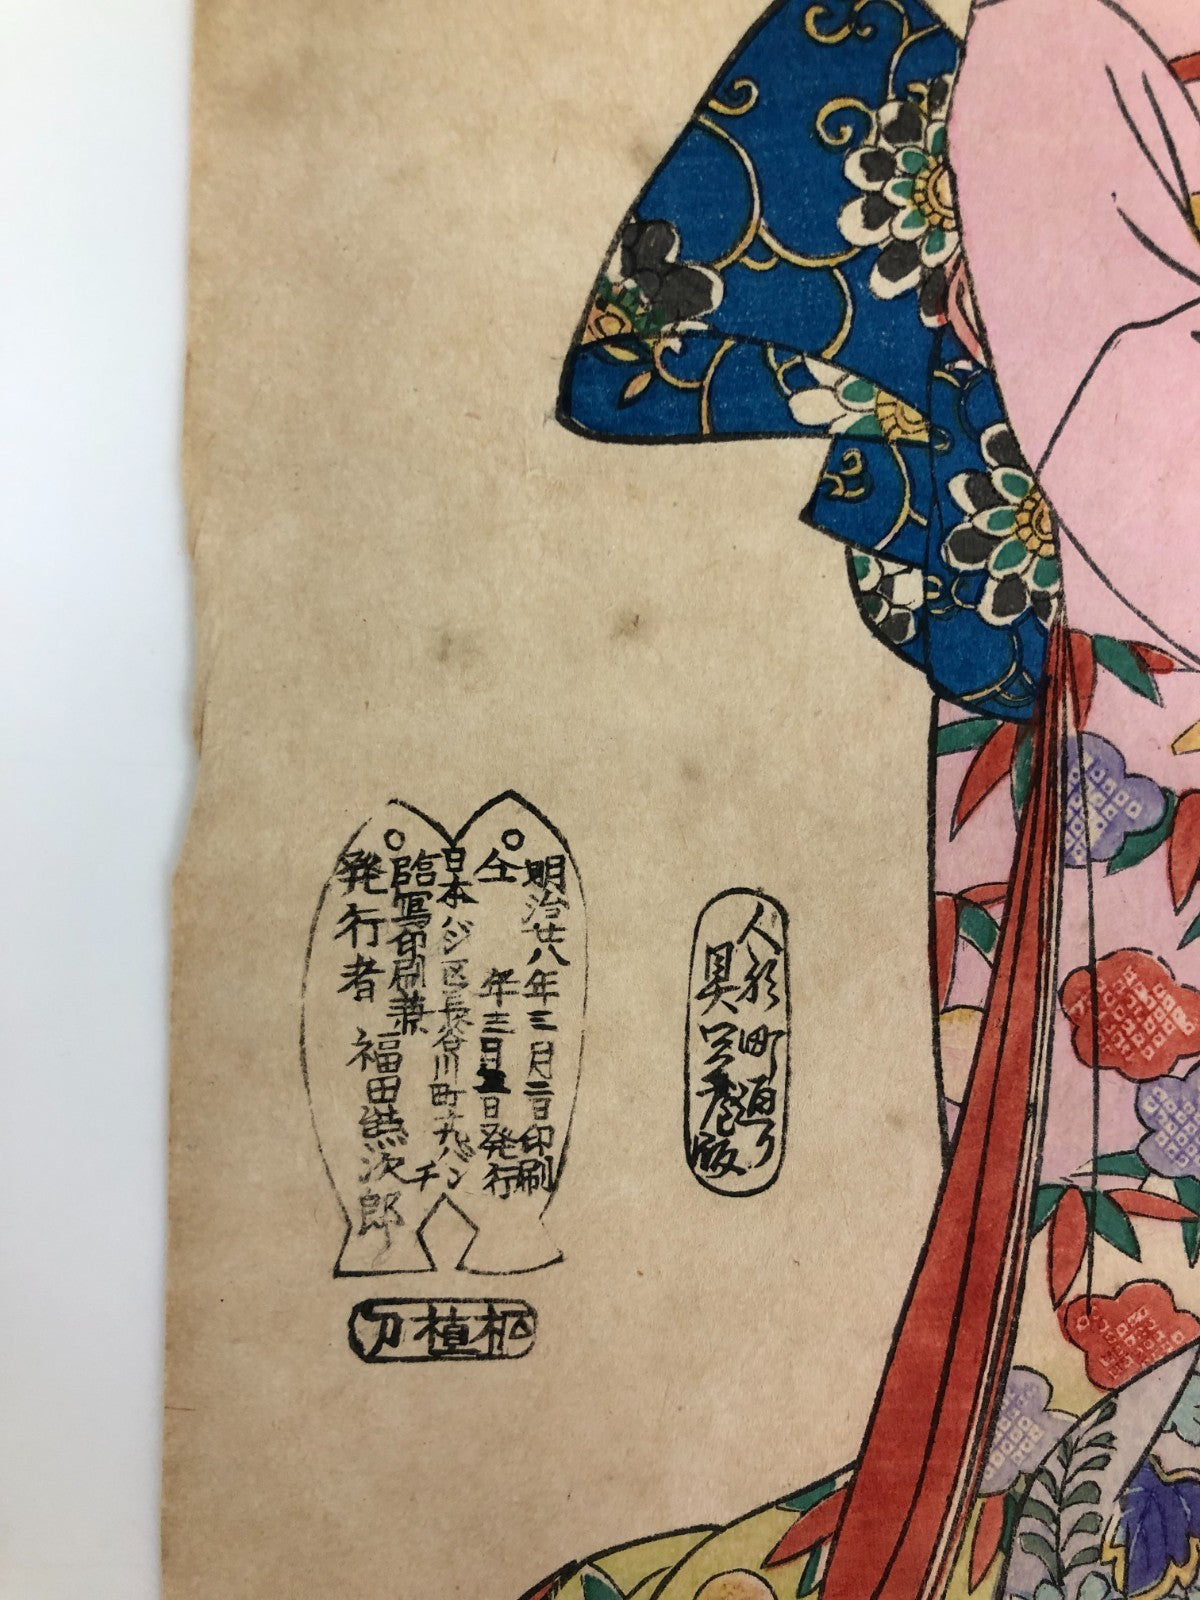 人形町通り
具足屋版
明治廿八年三月二日印刷
仝 年三月五日発行
日本バシ区長谷川町十九バンチ
臨写印刷兼
発行者 福田熊次郎
植刀